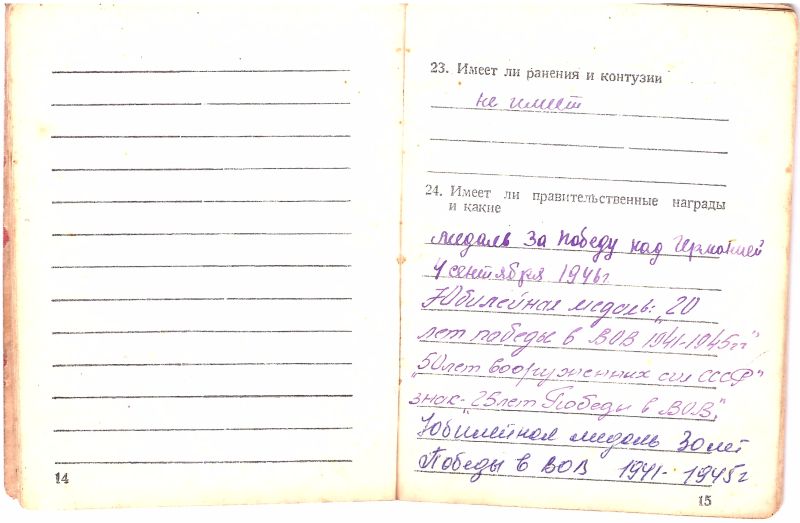 23. Имеет ли ранения и контузии
не имеет
24. Имеет ли правительственные награды
и какие
медаль За победу над Германией
4 сентября 1946г
Юбилейная медаль: „20
лет победы в ВОВ 1941-1945гг"
„50лет вооруженных сил СССР"
знак-25лет Победы в ВОВ"
Юбилейная медаль 30 лет
Победы в ВОВ 1941-1945г
14
15